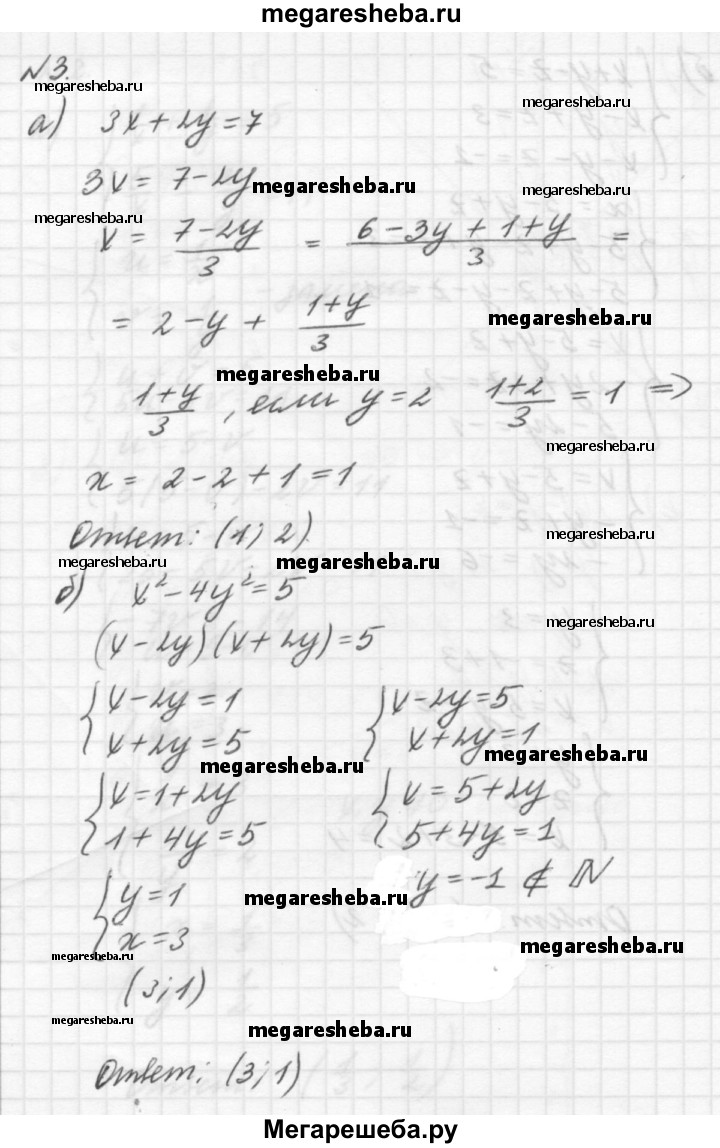 megaresheba.ru
№3.
megaresheba.ru
megaresheba.ru
а) 3x + 2y = 7
3x = 7 - 2y
megaresheba.ru
megaresheba.ru
megaresheba.ru
x = (7 - 2y)/3 = (6 - 3y + 1 + y)/3 =
= 2 - y + (1 + y)/3
megaresheba.ru
megaresheba.ru
(1 + y)/3, если y = 2 (1 + 2)/3 = 1 =>
x = 2 - 2 + 1 = 1
Ответ: (1; 2).
megaresheba.ru
megaresheba.ru
б) x² - 4y² = 5
megaresheba.ru
(x - 2y)(x + 2y) = 5
{ x - 2y = 1 { x - 2y = 5
x + 2y = 5 x + 2y = 1
megaresheba.ru
megaresheba.ru
{ x = 1 + 2y { x = 5 + 2y
1 + 4y = 5 5 + 4y = 1
{ y = 1 y = -1 ∉ ℕ
megaresheba.ru
x = 3
megaresheba.ru
megaresheba.ru
(3; 1)
megaresheba.ru
megaresheba.ru
Ответ: (3; 1)
Мегарешеба.ру